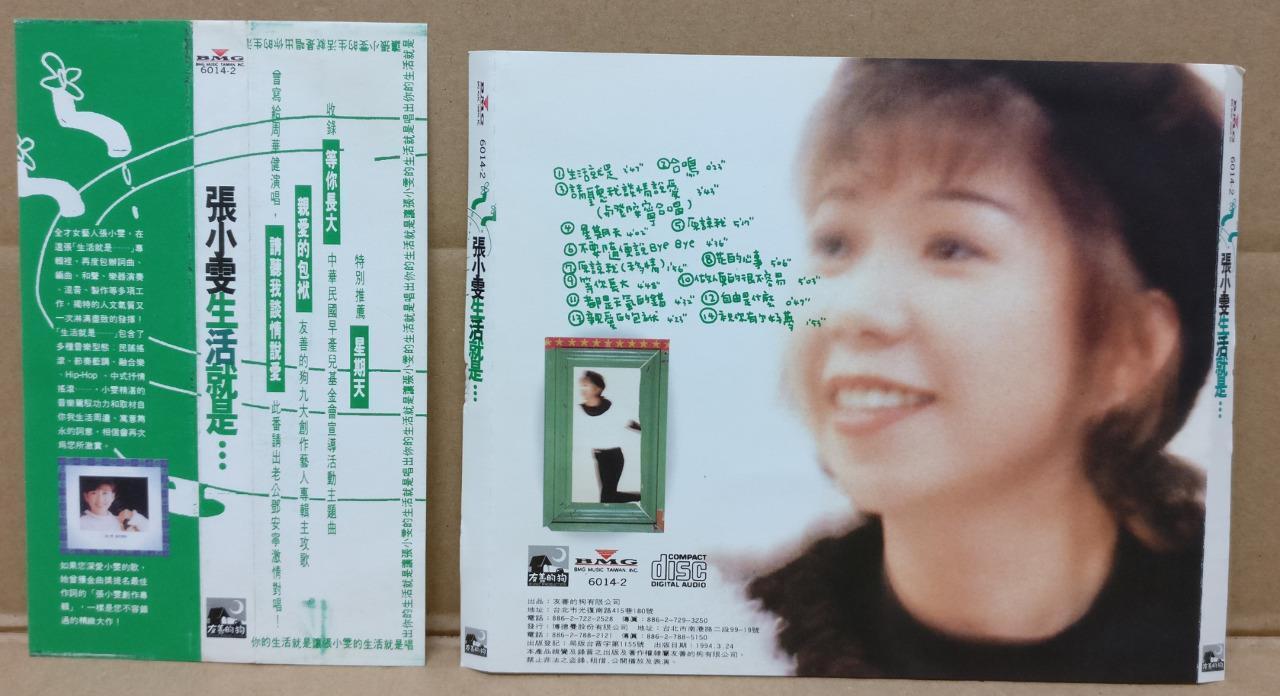 全才女藝人張小雯，在
這張「生活就是……」專
輯裡，再度包辦詞曲、
編曲、和聲、樂器演奏
、混音、製作等多項工
作，獨特的人文氣質又
一次淋漓盡致的發揮！
「生活就是……」包含了
多種音樂型態，民謠搖
滾、節奏藍調、融合樂
、Hip-Hop、中式抒情
搖滾……，小雯精湛的
音樂駕馭功力和取材自
你我生活周遭、寓意雋
永的詞意，相信會再次
為您所激賞。
如果您深愛小雯的歌，
她曾獲金曲獎提名最佳
作詞的「張小雯創作專
輯」，一樣是您不容錯
過的精緻大作！
BMG
BMG MUSIC TAIWAN INC.
6014-2
張小雯生活就是…
友善的狗
特別推薦 星期天
中華民國早產兒基金會宣導活動主題曲
收錄 等你長大
友善的狗九大創作藝人專輯主攻歌
親愛的包袱
曾寫給周華健演唱，請聽我談情說愛 此番請出老公鄧安寧激情對唱！
讓張小雯的生活就是唱出你的生活就是讓張小雯的生活就是唱出你的生活就是
你的生活就是讓張小雯的生活就是唱
BMG
6014-2
張小雯生活就是…
友善的狗
①生活就是 3'43" ②合鳴 0'23"
③請聽我談情說愛 3'43"
④星期天 4'02" ⑤原諒我 5'17"
⑥不要隨便說 Bye Bye 4'36"
⑦原諒我(移情) 1'56" ⑧花的心事 5'06"
⑨等你長大 4'48" ⑩做心的很不容易 5'03"
⑪都是天氣的錯 4'32" ⑫自由是什麼 0'47"
⑬親愛的包袱 4'23" ⑭祝你有个好夢 1'53"
友善的狗
BMG
BMG MUSIC TAIWAN, INC.
6014-2
COMPACT
disc
DIGITAL AUDIO
出品：友善的狗有限公司
地址：台北市光復南路415巷180號
電話：886-2-722-2528 傳真：886-2-729-3250
發行：博德曼股份有限公司 地址：台北市南港路二段99-19號
電話：886-2-788-2121 傳真：886-2-788-5150
出版登記：局版台音字第1155號 出版日期：1994.3.24
本產品視覺及錄音之出版及著作權隸屬友善的狗有限公司，
禁止非法之盜錄、租借、公開播放及表演。
BMG
6014-2
張小雯生活就是…
友善的狗